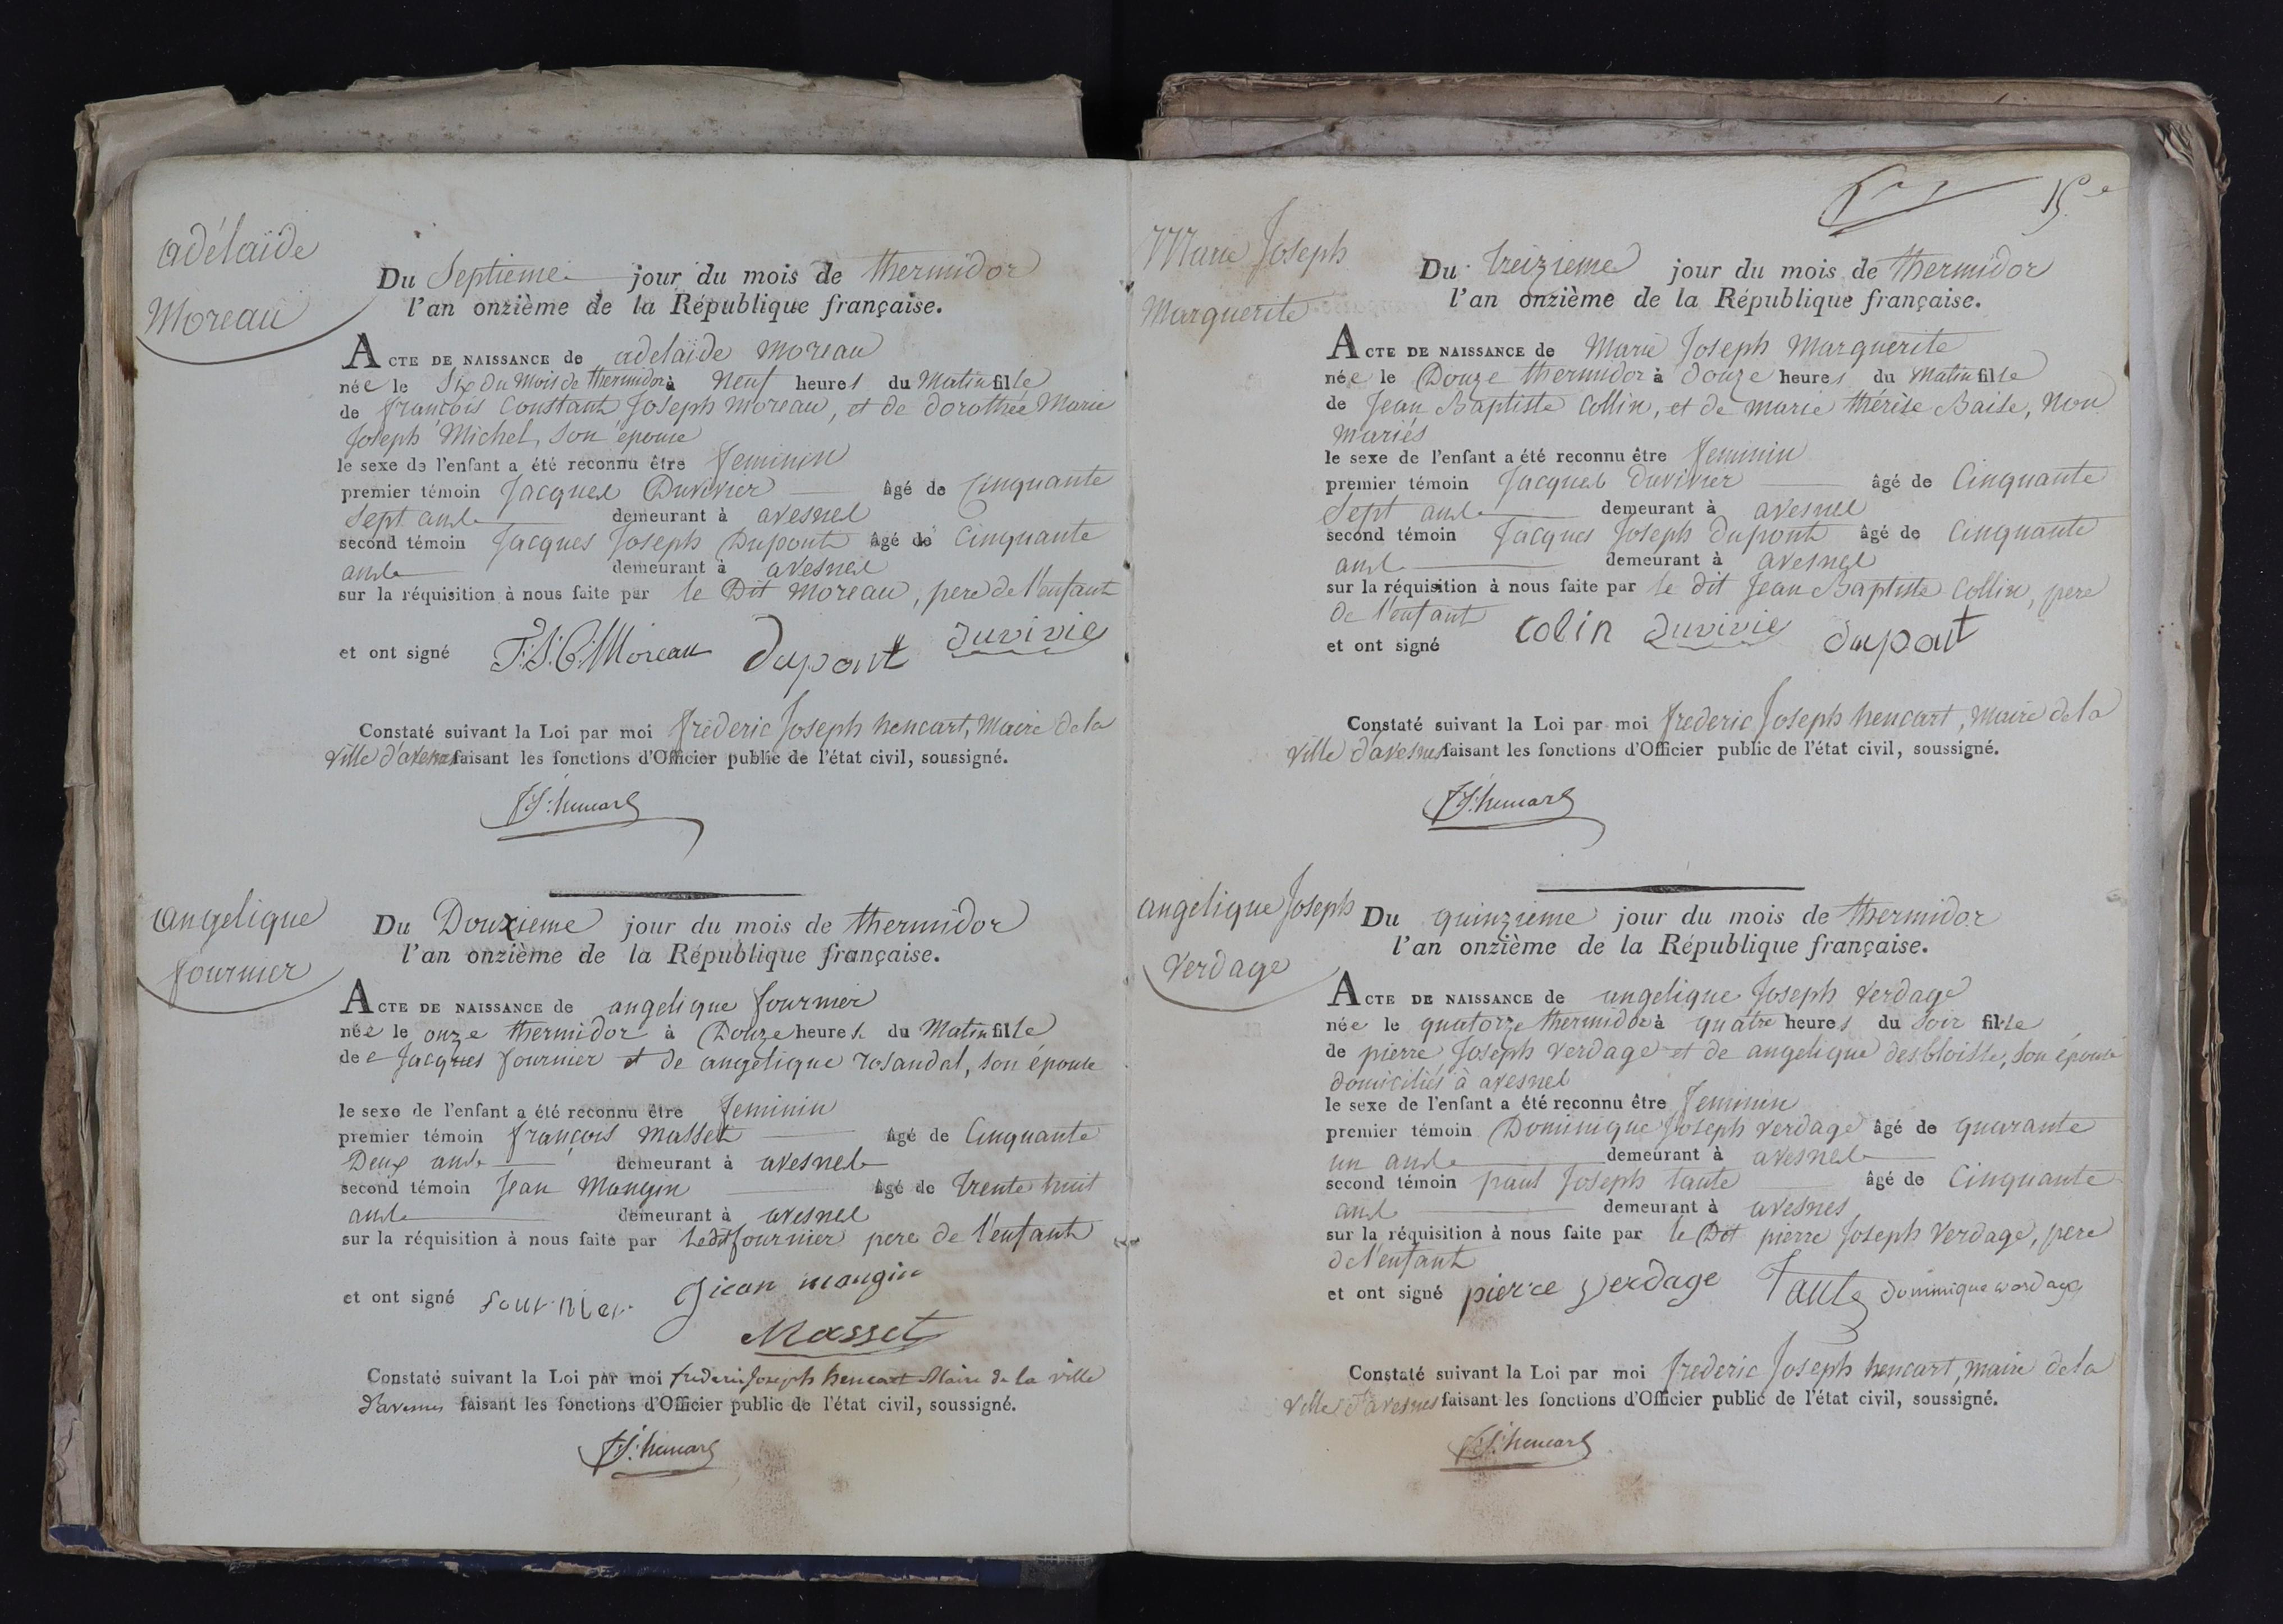 adélaïde
Moreau
Du Septieme jour du mois de thermidor
l'an onzième de la République française.
ACTE DE NAISSANCE de adelaïde Moreau
née le Six du Mois de thermidor à Neuf heures du Matin fille
de françois Constant Joseph Moreau, et de dorothée Marie
Joseph Michel, Son épouse
le sexe de l'enfant a été reconnu être feminin
premier témoin Jacques Duvivier âgé de Cinquante
Sept ans demeurant à avesnes
second témoin Jacques Joseph Dupont âgé de Cinquante
ans demeurant à avesnes
sur la réquisition à nous faite par le Dit Moreau, pere de l'enfant
et ont signé F.J.C. Moreau dupont duvivie
Constaté suivant la Loi par moi frederic Joseph hencart, Maire de la
Ville d'avesnes faisant les fonctions d'Officier public de l'état civil, soussigné.
F.J. hencart
angelique
fournier
Du Douzieme jour du mois de thermidor
l'an onzième de la République française.
ACTE DE NAISSANCE de angelique fournier
née le onze thermidor à Douze heures du Matin fille
de Jacques fournier et de angelique rosandal, son épouse
le sexe de l'enfant a été reconnu être feminin
premier témoin françois Masset âgé de Cinquante
Deux ans demeurant à avesnes
second témoin Jean Mangin âgé de trente huit
ans demeurant à avesnes
sur la réquisition à nous faite par ledit fournier pere de l'enfant
et ont signé fournier Jiean mangin
Masset
Constaté suivant la Loi par moi frederic Joseph hencart Maire de la ville
d'avesnes faisant les fonctions d'Officier public de l'état civil, soussigné.
F.J. hencart
15e
Marie Joseph
Marguerite
Du treizieme jour du mois de thermidor
l'an onzième de la République française.
ACTE DE NAISSANCE de Marie Joseph Marguerite
née le Douze thermidor à douze heures du Matin fille
de Jean Baptiste Collin, et de marie thérèse Baise, Non
mariés
le sexe de l'enfant a été reconnu être feminin
premier témoin Jacques duvivier âgé de Cinquante
Sept ans demeurant à avesnes
second témoin Jacques Joseph dupont âgé de Cinquante
ans demeurant à avesnes
sur la réquisition à nous faite par le dit Jean Baptiste Collin, pere
de l'enfant
et ont signé colin duvivie dupont
Constaté suivant la Loi par moi frederic Joseph hencart, Maire de la
Ville d'avesnes faisant les fonctions d'Officier public de l'état civil, soussigné.
F.J. hencart
angelique Joseph
Verdage
Du quinzieme jour du mois de thermidor
l'an onzième de la République française.
ACTE DE NAISSANCE de angelique Joseph Verdage
née le quatorze thermidor à quatre heures du Soir fille
de pierre Joseph Verdage et de angelique desbloiste, son épouse
domiciliés à avesnes
le sexe de l'enfant a été reconnu être feminin
premier témoin Dominique Joseph Verdage âgé de quarante
un ans demeurant à avesnes
second témoin paul Joseph taute âgé de Cinquante
ans demeurant à avesnes
sur la réquisition à nous faite par le Dit pierre Joseph Verdage, pere
de l'enfant
et ont signé pierre verdage Taute dominique wordage
Constaté suivant la Loi par moi frederic Joseph hencart, maire de la
Ville d'avesnes faisant les fonctions d'Officier public de l'état civil, soussigné.
F.J. hencart